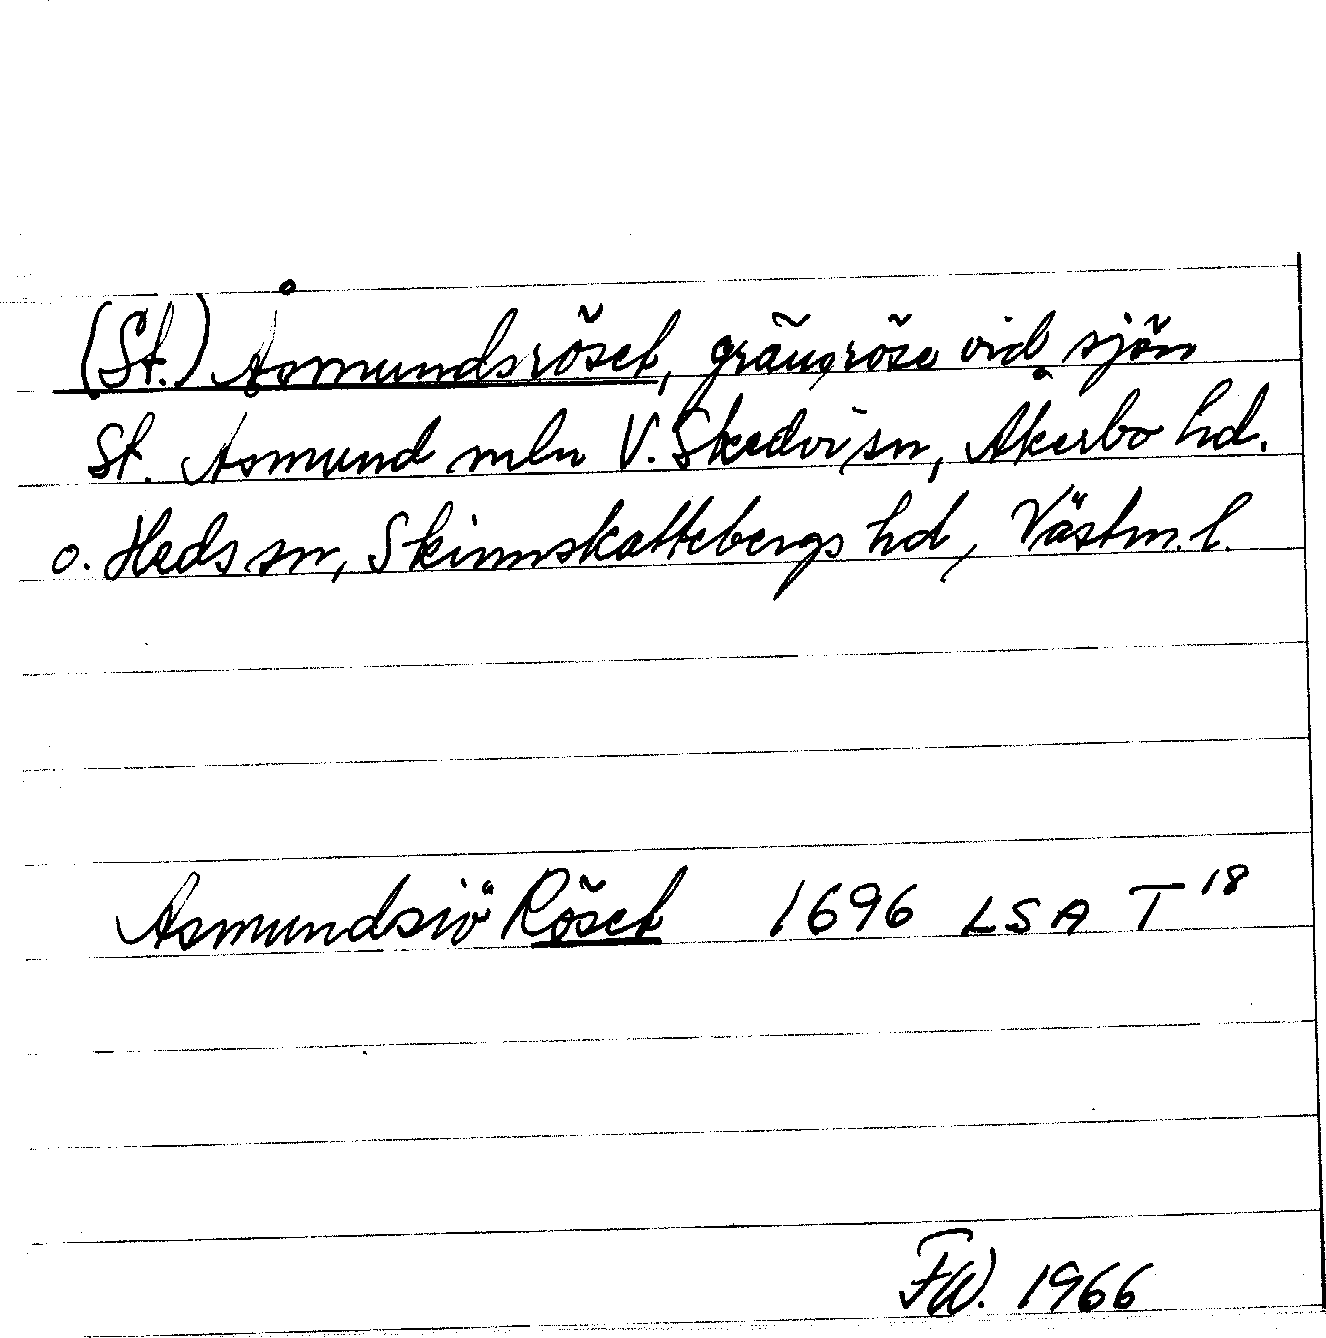 (St.) Åsmundsröset, gränsröse vid sjön
St. Åsmund mln V. Skedvi sn, Åkerbo hd.
o. Heds sn, Skinnskattebergs hd, Västm. l.
Asmundsiö Röset 1696 LSA T 18
FW. 1966